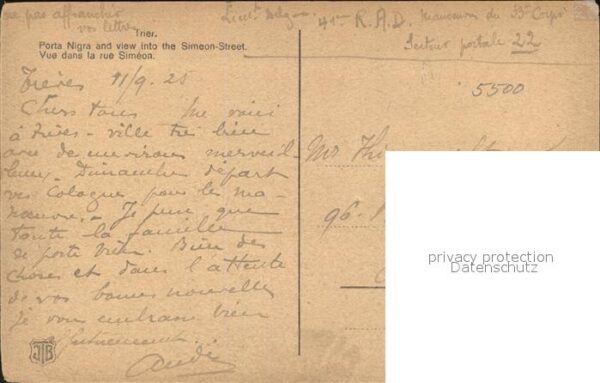 ne pas affranchir
vos lettres
Lieut.
41me R.A.D. Manoeuvres du 33e Corps
Secteur postale 22
Trier.
Porta Nigra and view into the Simeon-Street.
Vue dans la rue Siméon.
Trèves 11/9.25
5500
Chers tous Me voici
à Trèves - ville très bien
avec des environs merveil-
leux. Dimanche départ
vers Cologne pour les ma-
noeuvre. Je pense que
toute la famille
se porte bien. Bien des
choses et dans l'attente
de vos bonnes nouvelles
je vous embrasse bien
André
Mr
96.
privacy protection
Datenschutz
JTB